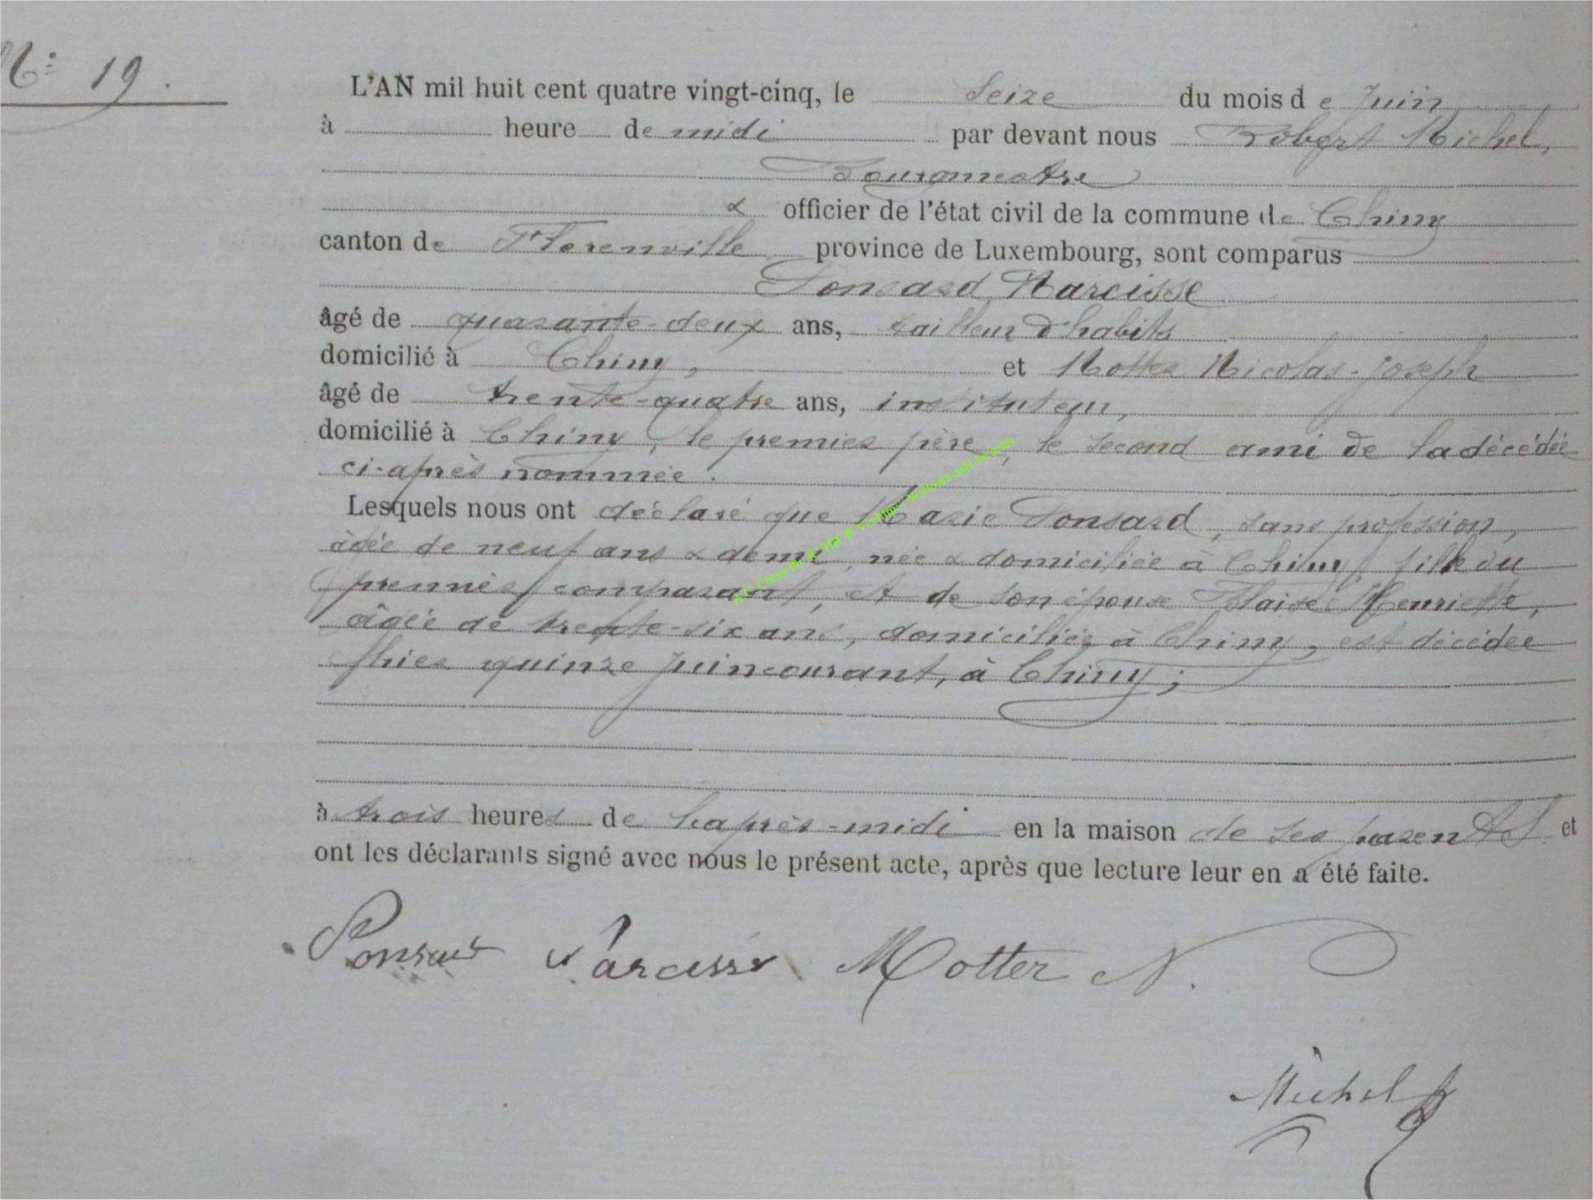 N° 19.
L'AN mil huit cent quatre vingt-cinq, le Seize du mois de Juin
à heure de midi par devant nous Robert Michel,
Bourgmestre
& officier de l'état civil de la commune de Chiny
canton de Florenville province de Luxembourg, sont comparus
Ponsard Narcisse
âgé de quarante-deux ans, tailleur d'habits
domicilié à Chiny, et Motter Nicolas-Joseph
âgé de trente-quatre ans, instituteur,
domicilié à Chiny, le premier père, le second ami de la décédée
ci-après nommée.
Lesquels nous ont déclaré que Marie Ponsard, sans profession,
âgée de neuf ans & demi, née & domiciliée à Chiny, fille du
premier comparant, et de son épouse Blaise Henriette,
âgée de trente-six ans, domiciliée à Chiny, est décédée
hier quinze juin courant, à Chiny;
à trois heures de l'après-midi en la maison de ses parents et
ont les déclarants signé avec nous le présent acte, après que lecture leur en a été faite.
Ponsard Narcisse Motter N.
Michel R